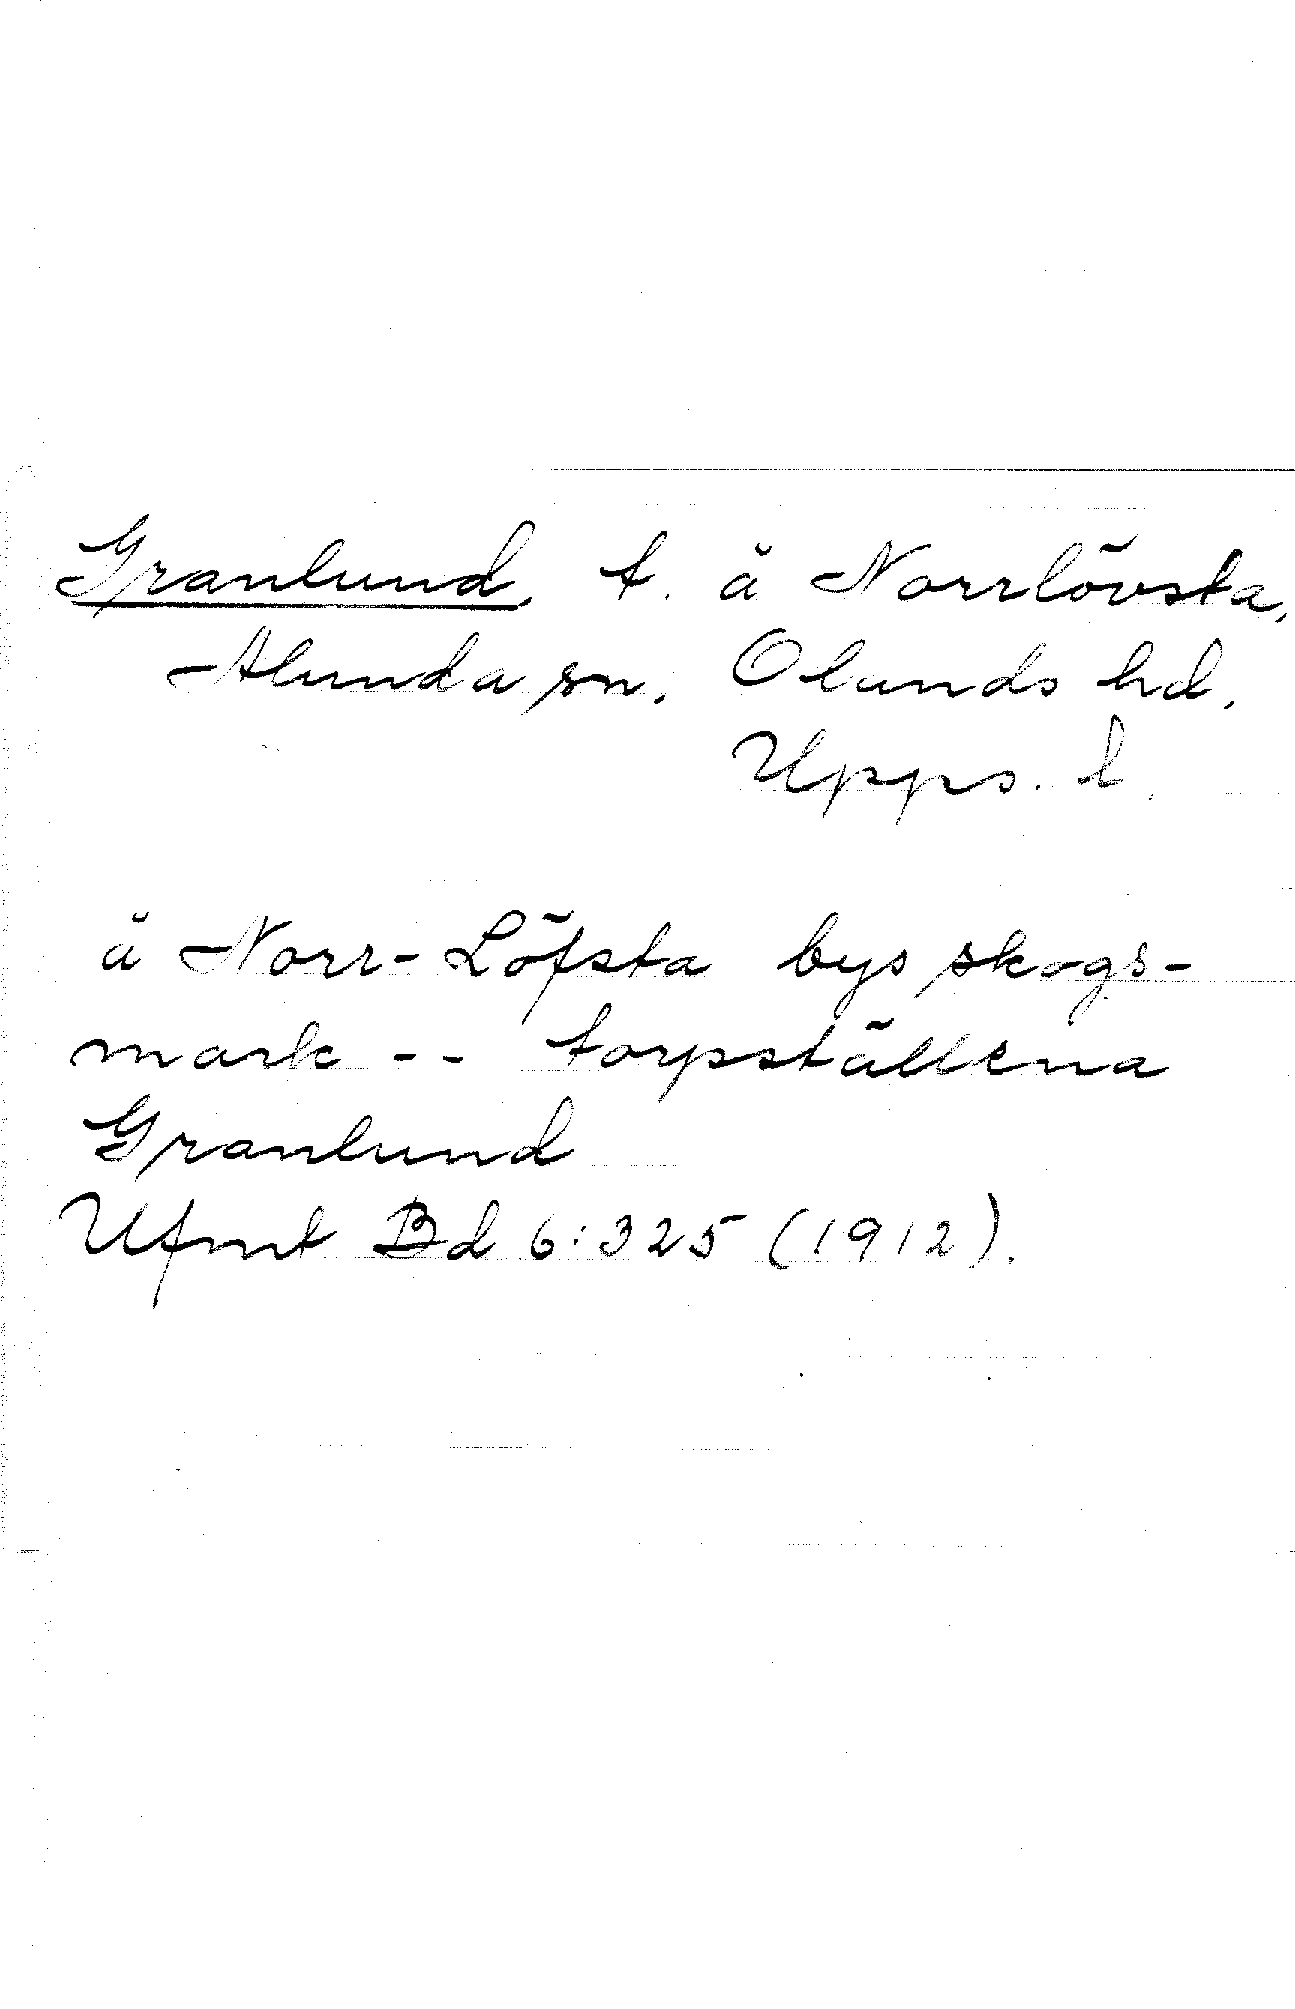 Granlund, t. å Norrlövsta,
Alunda sn. Olands hd,
Upps. l.
å Norr-Löfsta bys skogs-
mark -- torpställena
Granlund
Ufmt Bd 6:325 (1912).